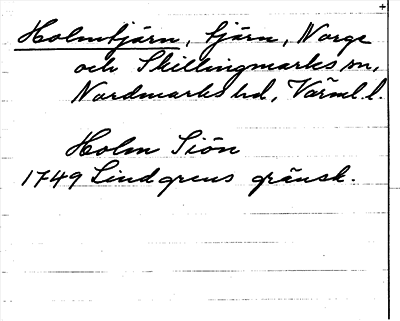 Holmtjärn, tjärn, Norge
och Skillingmarks sn,
Nordmarks hd, Värml. l.
Holm Siön
1749 Lindgrens gränsk.